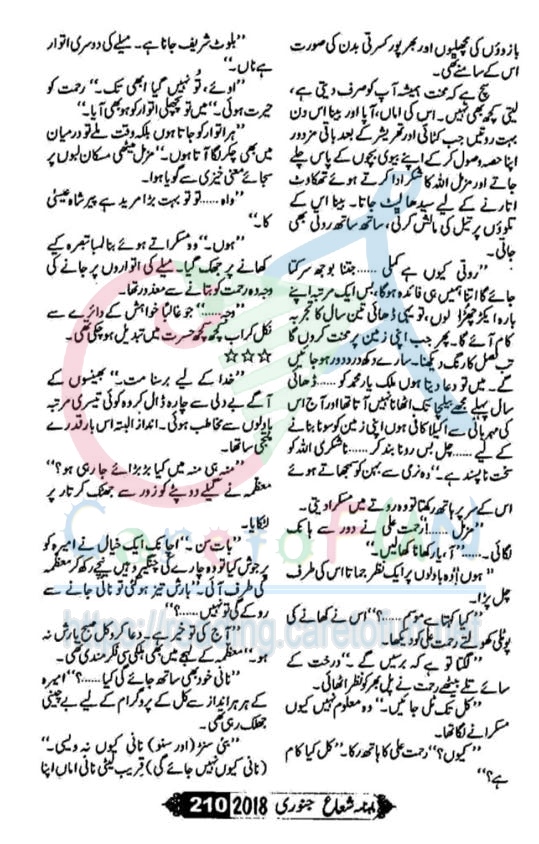 بازوؤں کی مچھلیوں اور بھرپور کسرتی بدن کی صورت
اس کے سامنے تھی۔
سچ ہے کہ محنت ہمیشہ آپ کو صرف دیتی ہے،
لیتی کچھ بھی نہیں۔ اس کی اماں، آپا اور بینا اس دن
بہت روتیں جب کٹائی اور تھریشر کے بعد باقی مزدور
اپنا حصہ وصول کر کے اپنے بیوی بچوں کے پاس چلے
جاتے اور مزمل اللہ کا شکر ادا کرتے ہوئے تھکاوٹ
اتارنے کے لیے سیدھا لیٹ جاتا۔ بینا اس کے
تلوؤں پر تیل کی مالش کرتی، ساتھ ساتھ روتی بھی
جاتی۔
”روتی کیوں ہے کملی ...... جتنا بوجھ سر کتا
جائے گا اتنا ہمیں ہی فائدہ ہوگا، بس ایک مرتبہ اپنے
بارہ ایکڑ چھڑا لوں، تو یہی ڈھائی تین سال کا تجربہ
کام آئے گا۔ پھر جب اپنی زمین پر محنت کروں گا
تب فصل کا رنگ دیکھنا۔ سارے دکھ درد دور ہو جائیں
گے۔ میں تو دعا دیتا ہوں ملک یار محمد کو ...... ڈھائی
سال پہلے مجھے بیلچا تک اٹھانا نہیں آتا تھا اور آج اس
کی مہربانی سے اکیلا کافی ہوں اپنی زمین کو سونا بنانے
کے لیے ...... چل بس رونا بند کر ...... ناشکری اللہ کو
سخت ناپسند ہے۔“ وہ نرمی سے بہن کو سمجھاتے ہوئے
اس کے سر پر ہاتھ رکھتا تو وہ روتے میں مسکرا دیتی۔
”مزمل ......!“ رحمت علی نے دور سے ہانک
لگائی۔ ...... ”آ، یار کھانا کھا لیں۔“
”ہوں!“ وہ بادلوں پر ایک نظر جماتا اس کی طرف
چل پڑا۔
”کیا کہتا ہے موسم ......؟“ اس نے کھانے کی
پوٹلی کھولتے رحمت علی کو دیکھا۔
”لگتا تو ہے کہ برسیں گے۔“ درخت کے
سائے تلے بیٹھے رحمت نے پل بھر کو نظر اٹھائی۔
”کل تک ٹل جائیں۔“ وہ معلوم نہیں کیوں
مسکرانے لگا تھا۔
”کیوں؟“ رحمت علی کا ہاتھ رکا۔ ”کل کیا کام
ہے؟“
”بلوٹ شریف جانا ہے۔ میلے کی دوسری اتوار
ہے ناں۔“
”اوئے، تُو نہیں گیا ابھی تک۔“ رحمت کو
حیرت ہوئی۔ ”میں تو پچھلی اتوار کو ہو بھی آیا۔“
”ہر اتوار کو جاتا ہوں بلکہ وقت ملے تو درمیان
میں بھی چکر لگا آتا ہوں۔“ مزمل میٹھی مسکان لبوں پر
سجائے معنی خیزی سے گویا ہوا۔
”واہ ...... تو تو بہت بڑا مرید ہے پیر شاہ عیسیٰ
کا۔“
”ہوں۔“ وہ مسکراتے ہوئے بنا لمبا تبصرہ کیے
کھانے پر جھک گیا۔ میلے کی اتواروں پر جانے کی
وجہ وہ رحمت کو بتانے سے معذور تھا۔
”وجہ ......“ جو غالباً خواہش کے دائرے سے
نکل کر اب کچھ کچھ حسرت میں تبدیل ہو چکی تھی۔
☆☆☆
”خدا کے لیے برسنا مت۔“ بھینسوں کے
آگے بے دلی سے چارہ ڈال کر وہ کوئی تیسری مرتبہ
بادلوں سے مخاطب ہوئی۔ انداز البتہ اس بار قدرے
ملتجی سا تھا۔
”منہ ہی منہ میں کیا بڑبڑائے جا رہی ہو؟“
معظمہ نے گیلے دوپٹے کو زور سے جھٹک کر تار پر
لٹکایا۔
”بات سن۔“ اچانک ایک خیال نے امیرہ کو
پر جوش کیا تو وہ چارے کی چنگیر وہیں نیچے رکھ کر معظمہ
کی طرف آئی۔ ”بارش تیز ہو گئی تو نانی جانے سے
روکے گی تو نہیں ......؟“
”آج کی تو خیر ہے۔ دعا کرو کل صبح بارش نہ
ہو۔“ معظمہ کے لہجے میں بھی ہلکی ہی فکر مندی تھی۔
”نانی خود بھی ساتھ جائے گی کیا ......؟“ امیرہ
کے ہر ہر انداز سے کل کے پروگرام کے لیے بے چینی
جھلک رہی تھی۔
”بئی سنڑ (اور سنو) نانی کیوں نہ ویسی۔“
(نانی کیوں نہیں جائے گی) قریب لیٹی نانی اماں اپنا
ماہنامہ شعاع جنوری 2018 210
CareToFUN
https://reading.caretofun.net